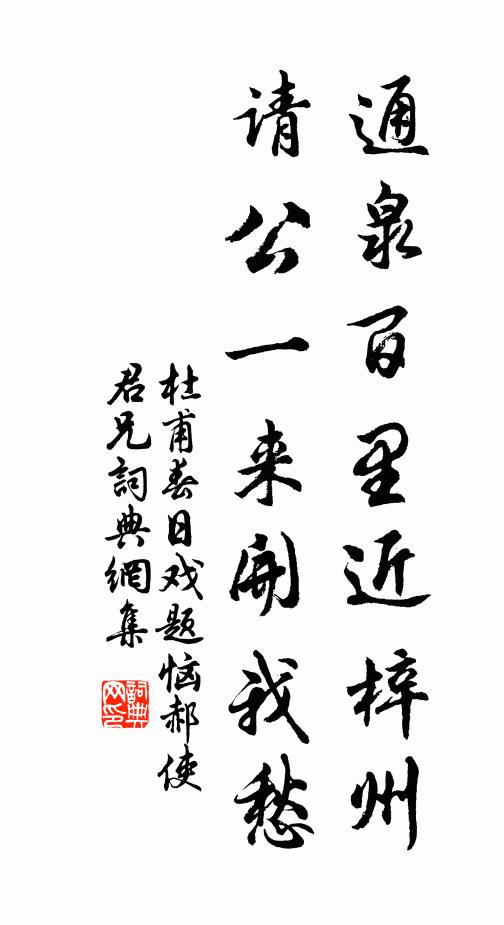 通泉百里近梓州
请公一来開我愁
杜甫春日戏题恼郝使
君兄詞典網集
詞典
网印